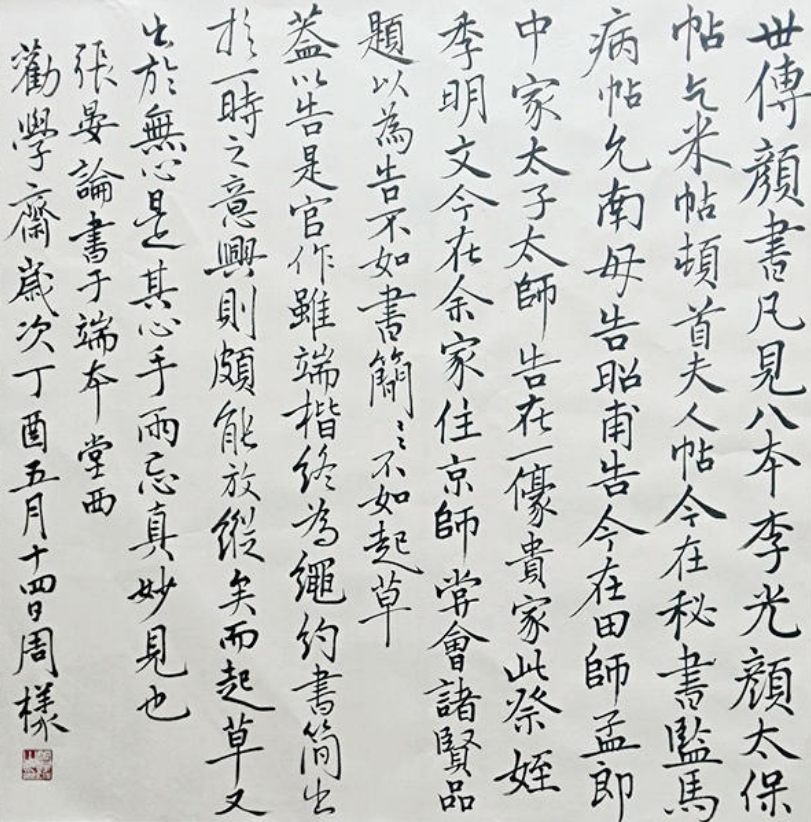 世傳顔書凡見八本李光顔太保
帖乞米帖頓首夫人帖今在秘書監馬
病帖允南母告昭甫告今在田師孟郎
中家太子太師告在一儫貴家此祭姪
季明文今在余家住京師嘗會諸賢品
題以為告不如書簡〻不如起草
蓋以告是官作雖端楷終為繩約書簡出
於一時之意興則頗能放縱矣而起草又
出於無心是其心手兩忘真妙見也
張晏論書于端本堂西
勸學齋歲次丁酉五月十四日周樣